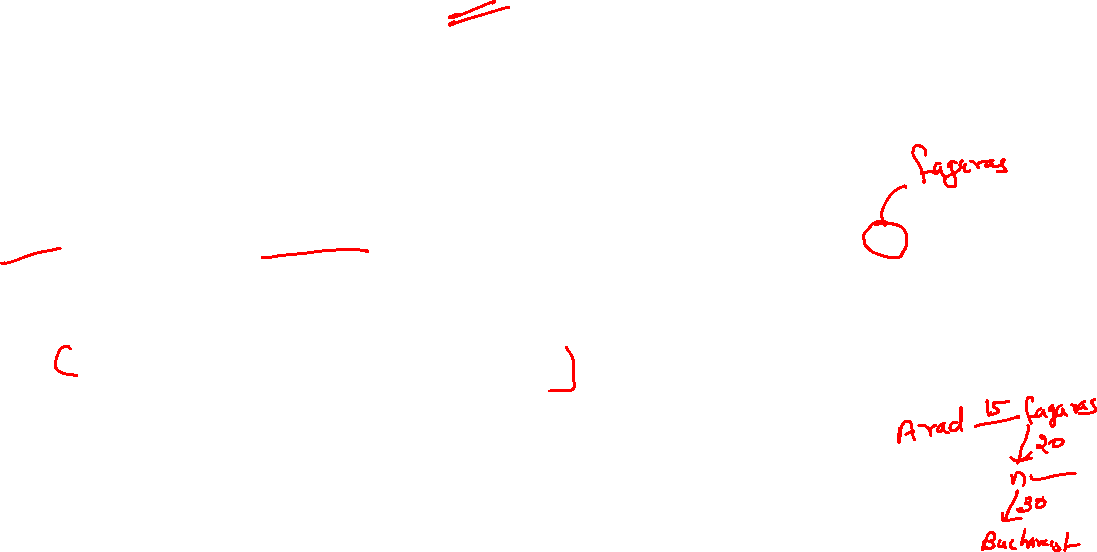 fagaras
Arad 15 fagaras
20
n
30
Bucharest